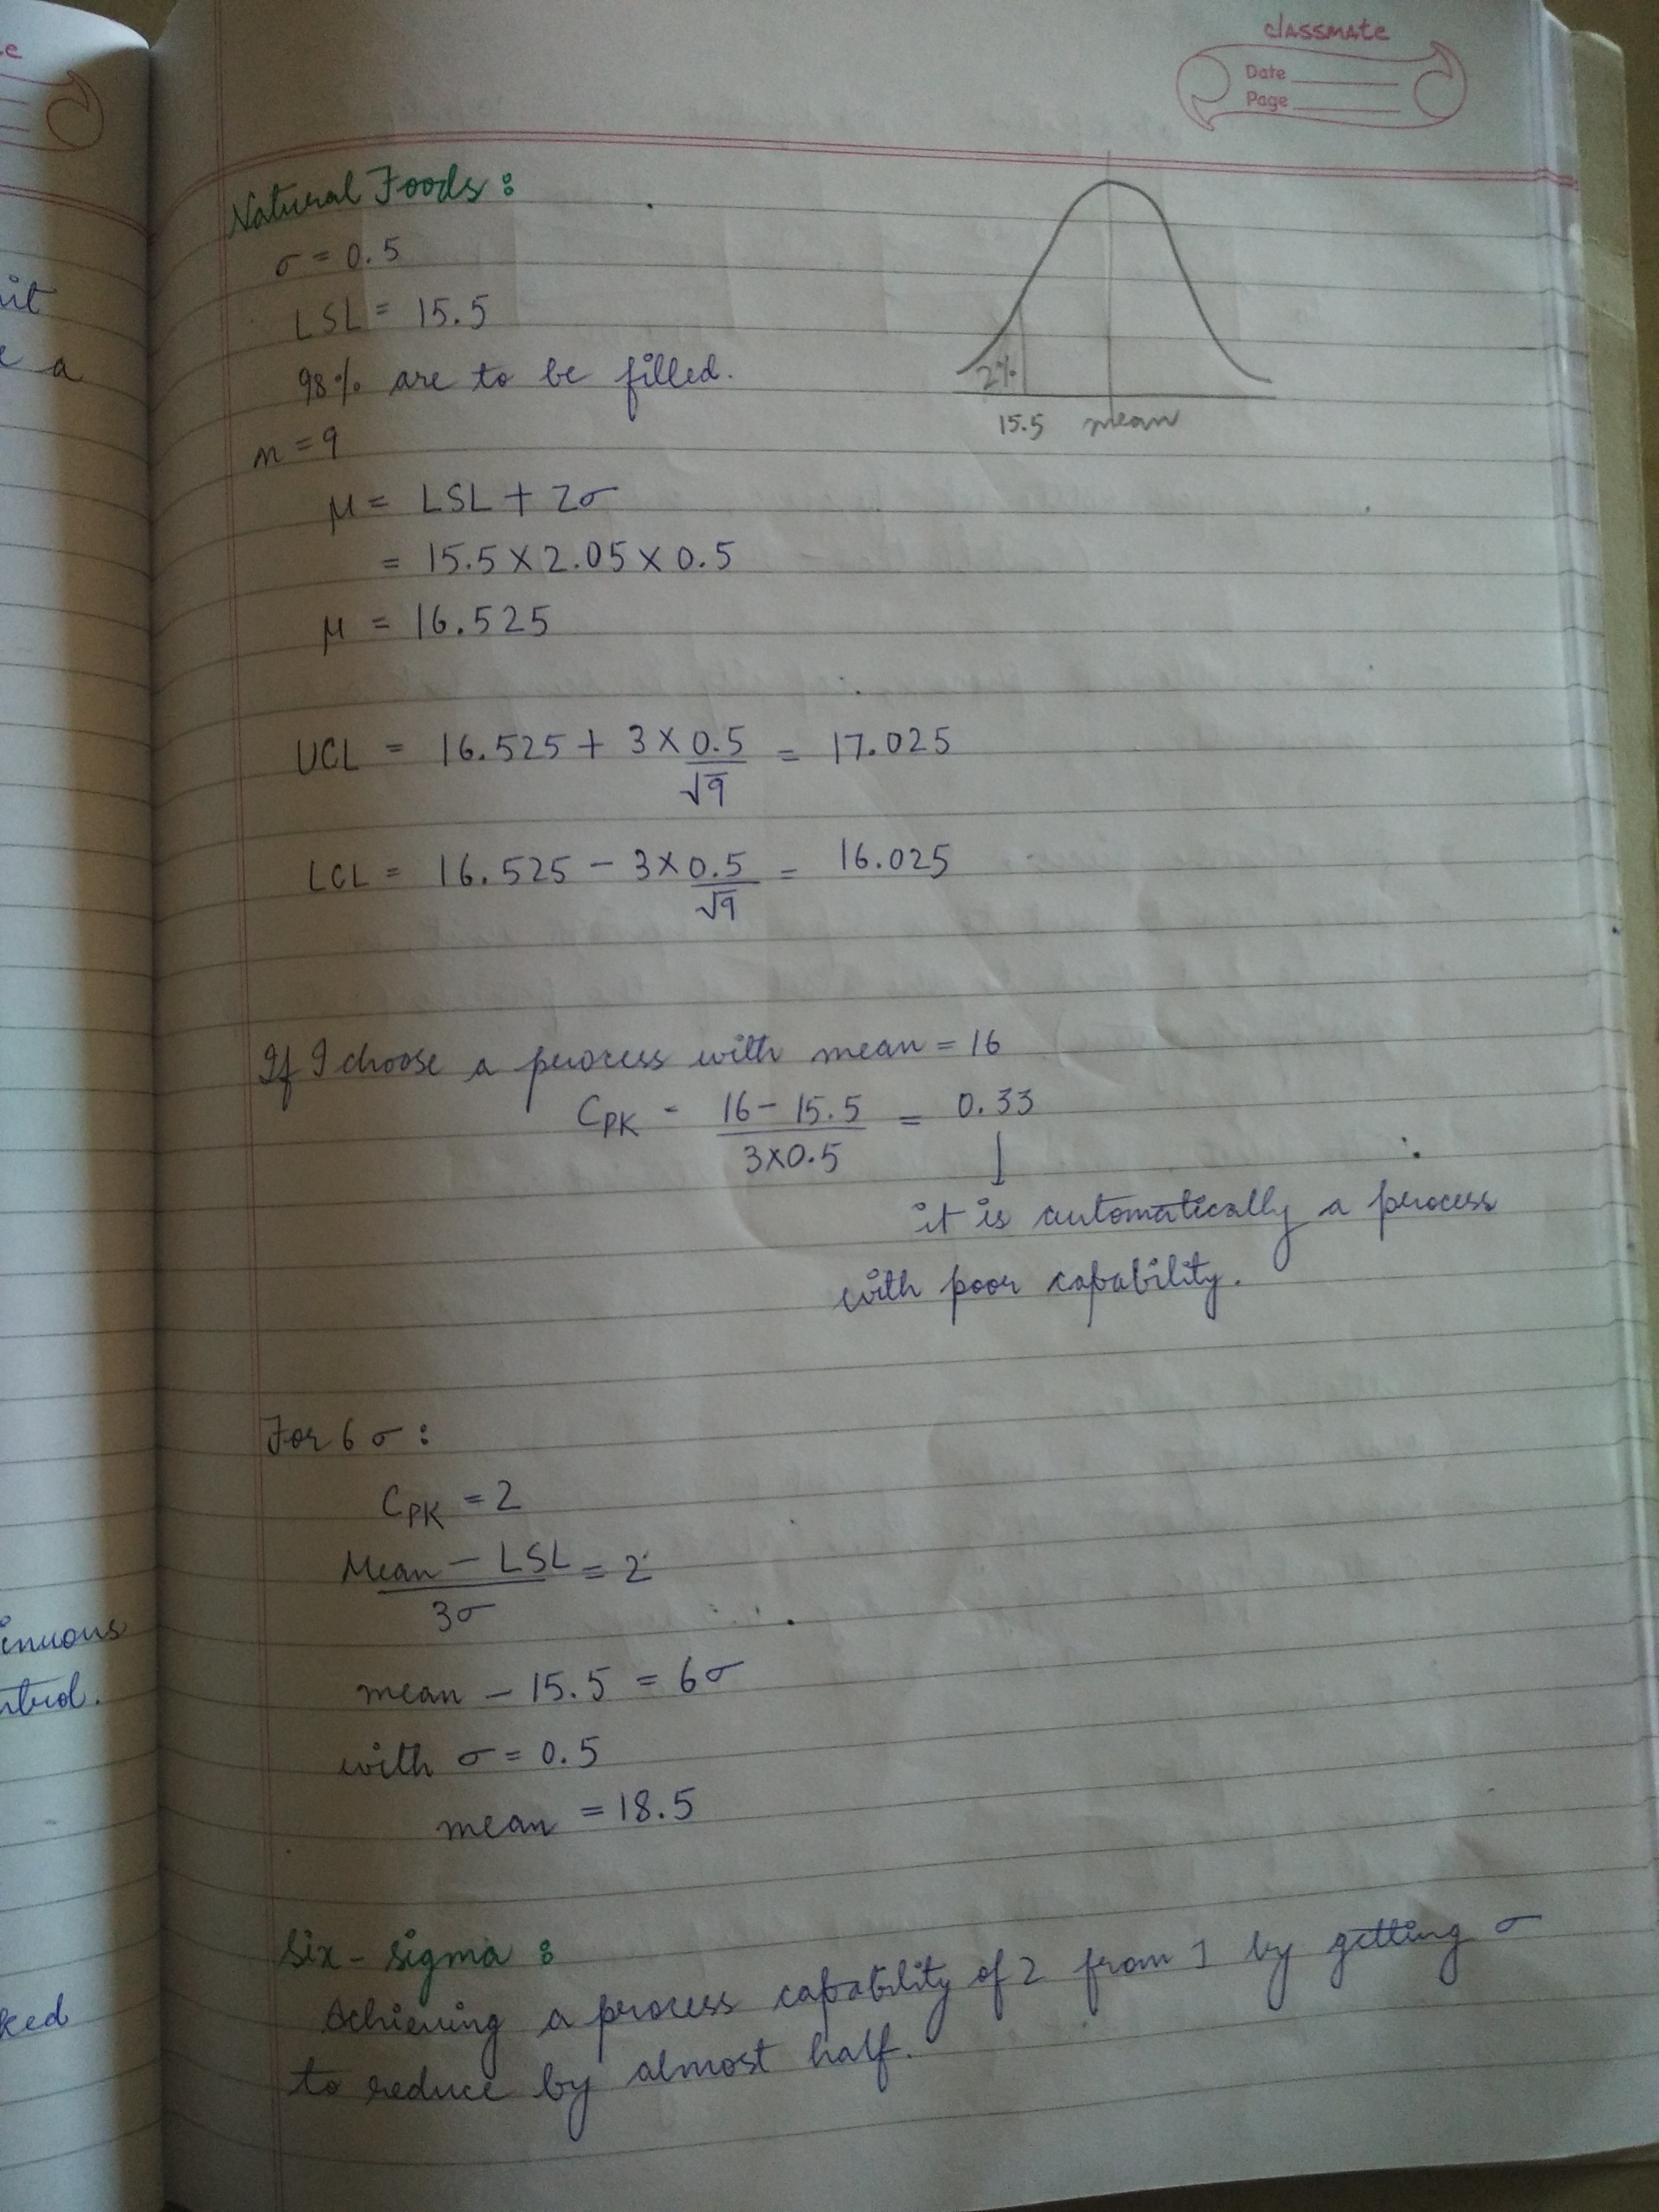 classmate
Date
Page
Natural Foods:
σ = 0.5
LSL = 15.5
98% are to be filled.
n = 9
2%
15.5 mean
μ = LSL + Zσ
= 15.5 × 2.05 × 0.5
μ = 16.525
UCL = 16.525 + 3 × 0.5/√9 = 17.025
LCL = 16.525 - 3 × 0.5/√9 = 16.025
If I choose a process with mean = 16
CPK = 16 - 15.5 / 3×0.5 = 0.33
↓
it is automatically a process
with poor capability.
For 6 σ:
CPK = 2
Mean - LSL / 3σ = 2
mean - 15.5 = 6σ
with σ = 0.5
mean = 18.5
Six-sigma:
Achieving a process capability of 2 from 1 by getting σ
to reduce by almost half.
e
it
e a
inuous
ntrol.
ked